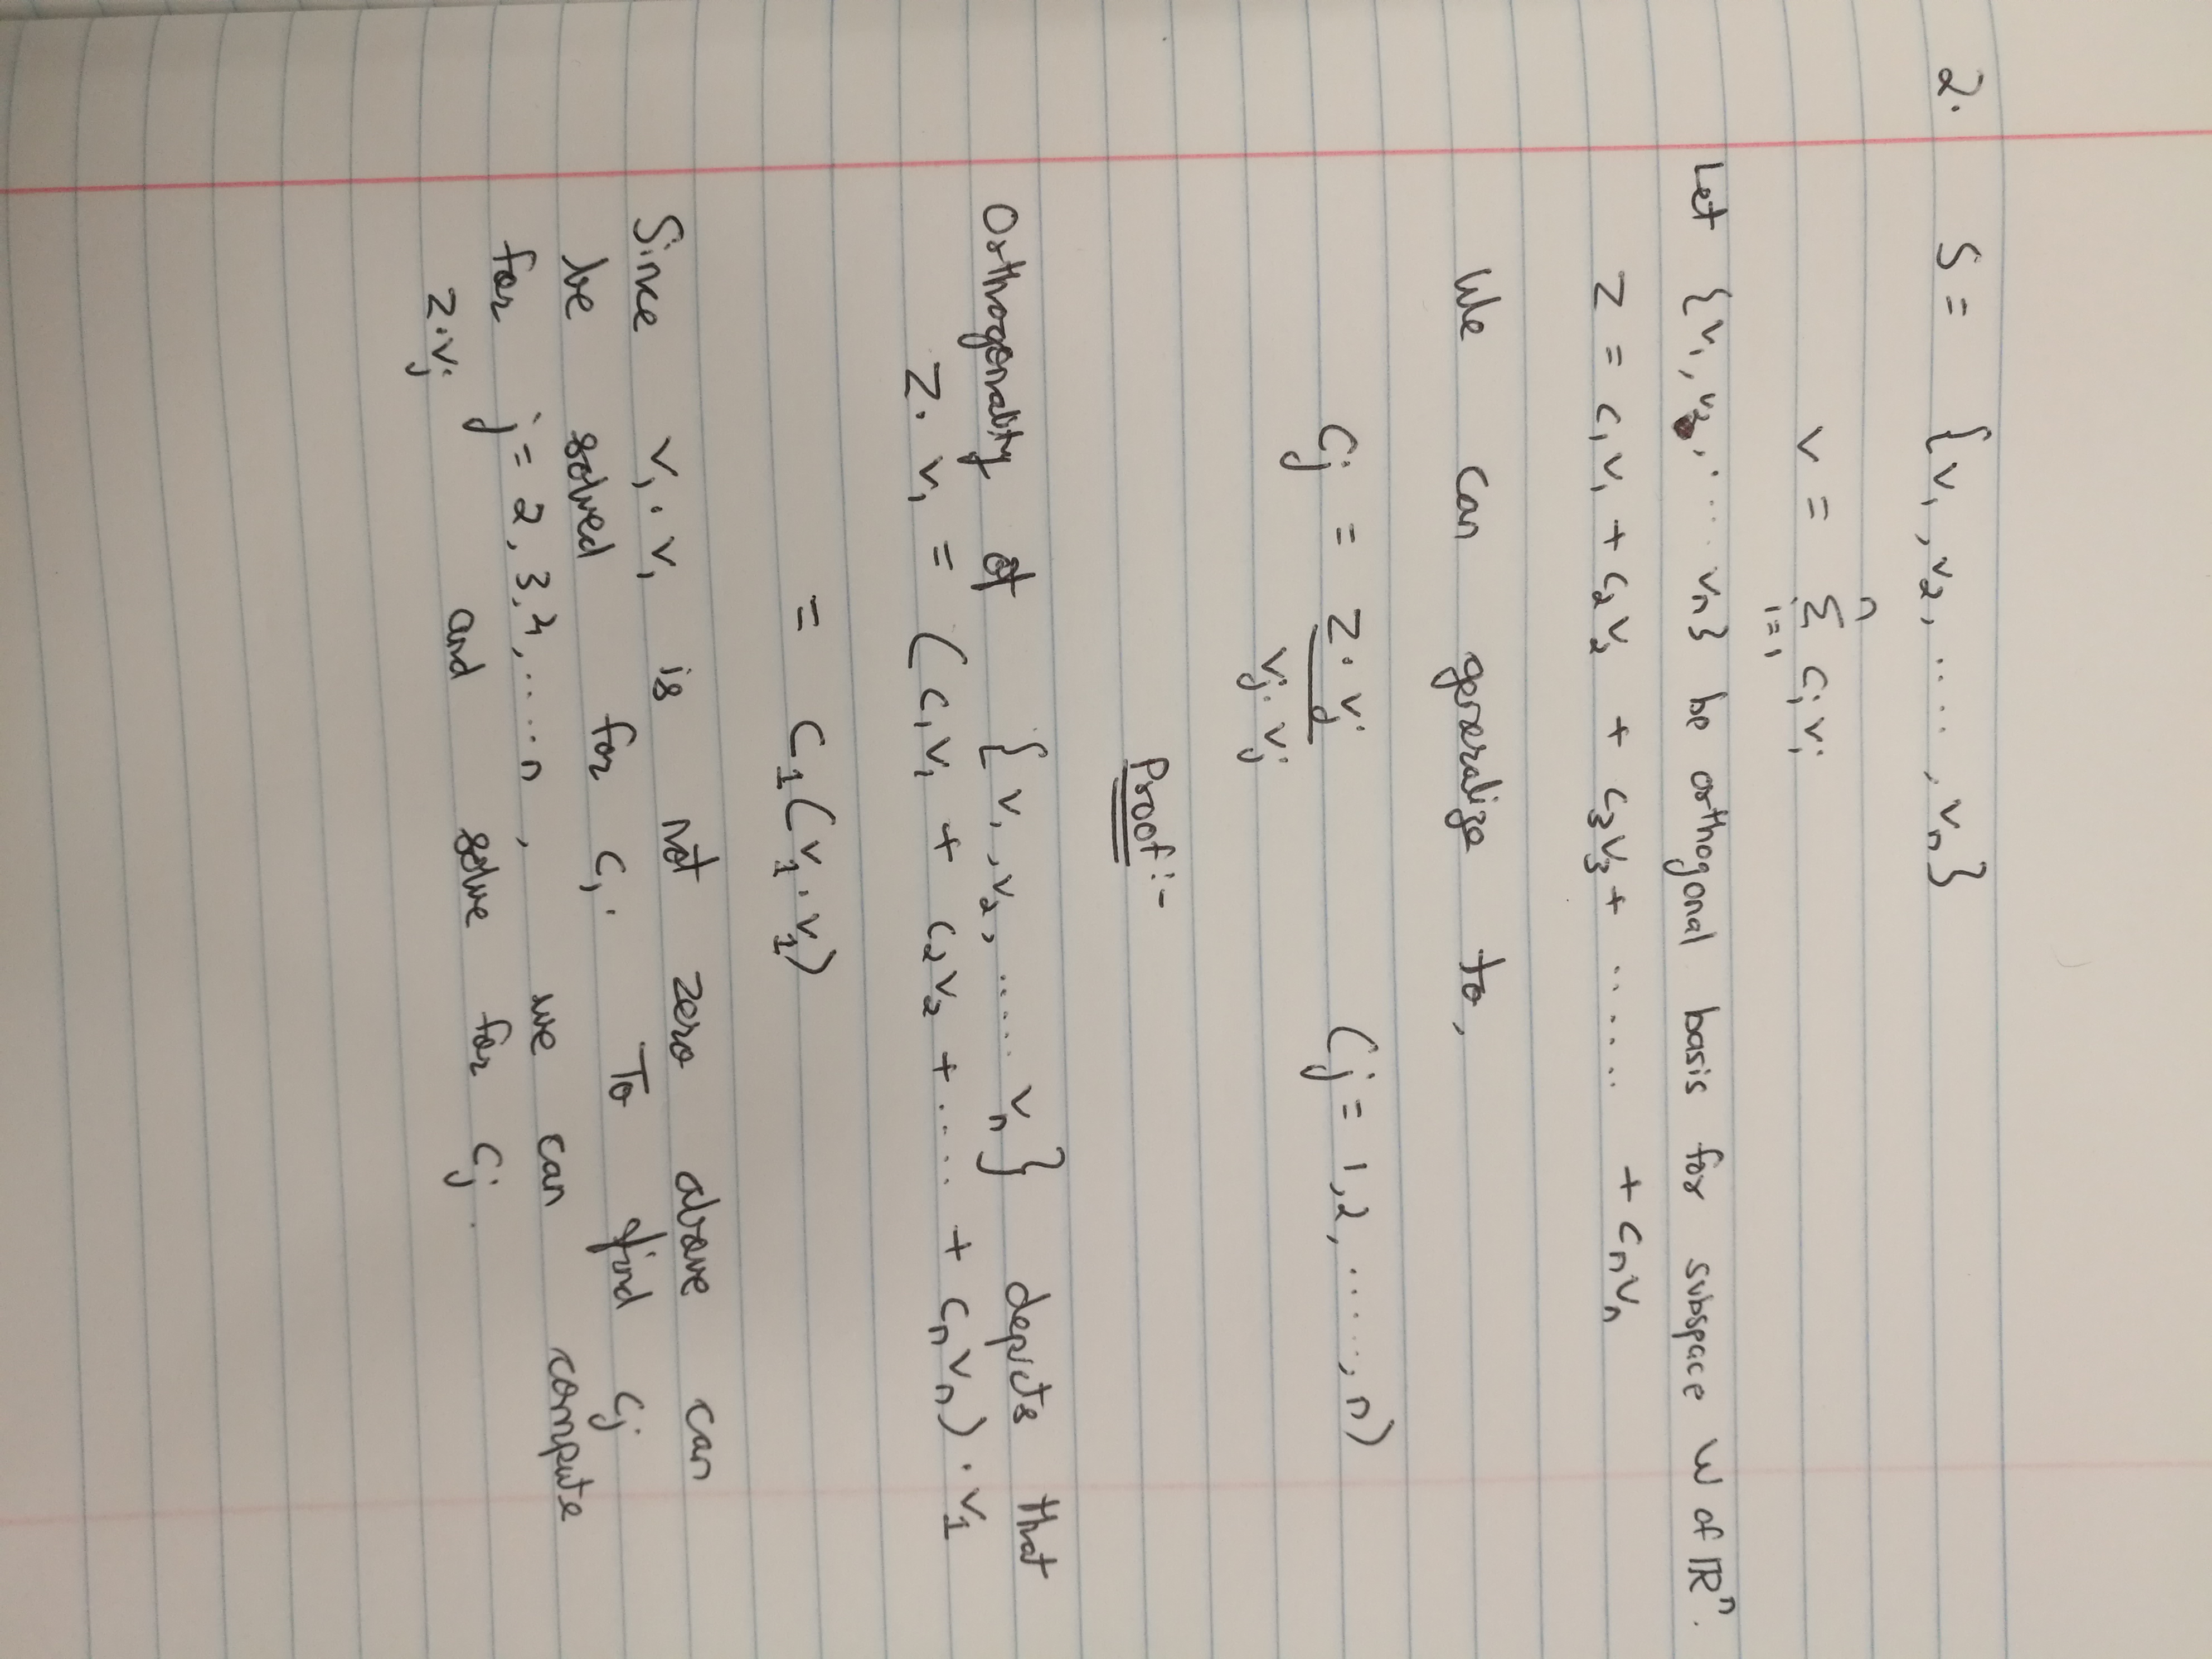 2. S = {v₁, v₂, ....., vₙ}
v = Σⁿᵢ₌₁ cᵢvᵢ
Let {v₁, v₂, .... vₙ} be orthogonal basis for subspace W of ℝⁿ.
z = c₁v₁ + c₂v₂ + c₃v₃ + ...... + cₙvₙ
We can generalize to,
cⱼ = z·vⱼ / vⱼ·vⱼ (j = 1, 2, ....., n)
Proof:-
Orthogonality of {v₁, v₂, ..... vₙ} depicts that
z·v₁ = (c₁v₁ + c₂v₂ + ..... + cₙvₙ)·v₁
= c₁(v₁·v₁)
Since v₁·v₁ is not zero above can
be solved for c₁. To find cⱼ
for j = 2, 3, 4, ..... n, we can compute
z·vⱼ and solve for cⱼ.